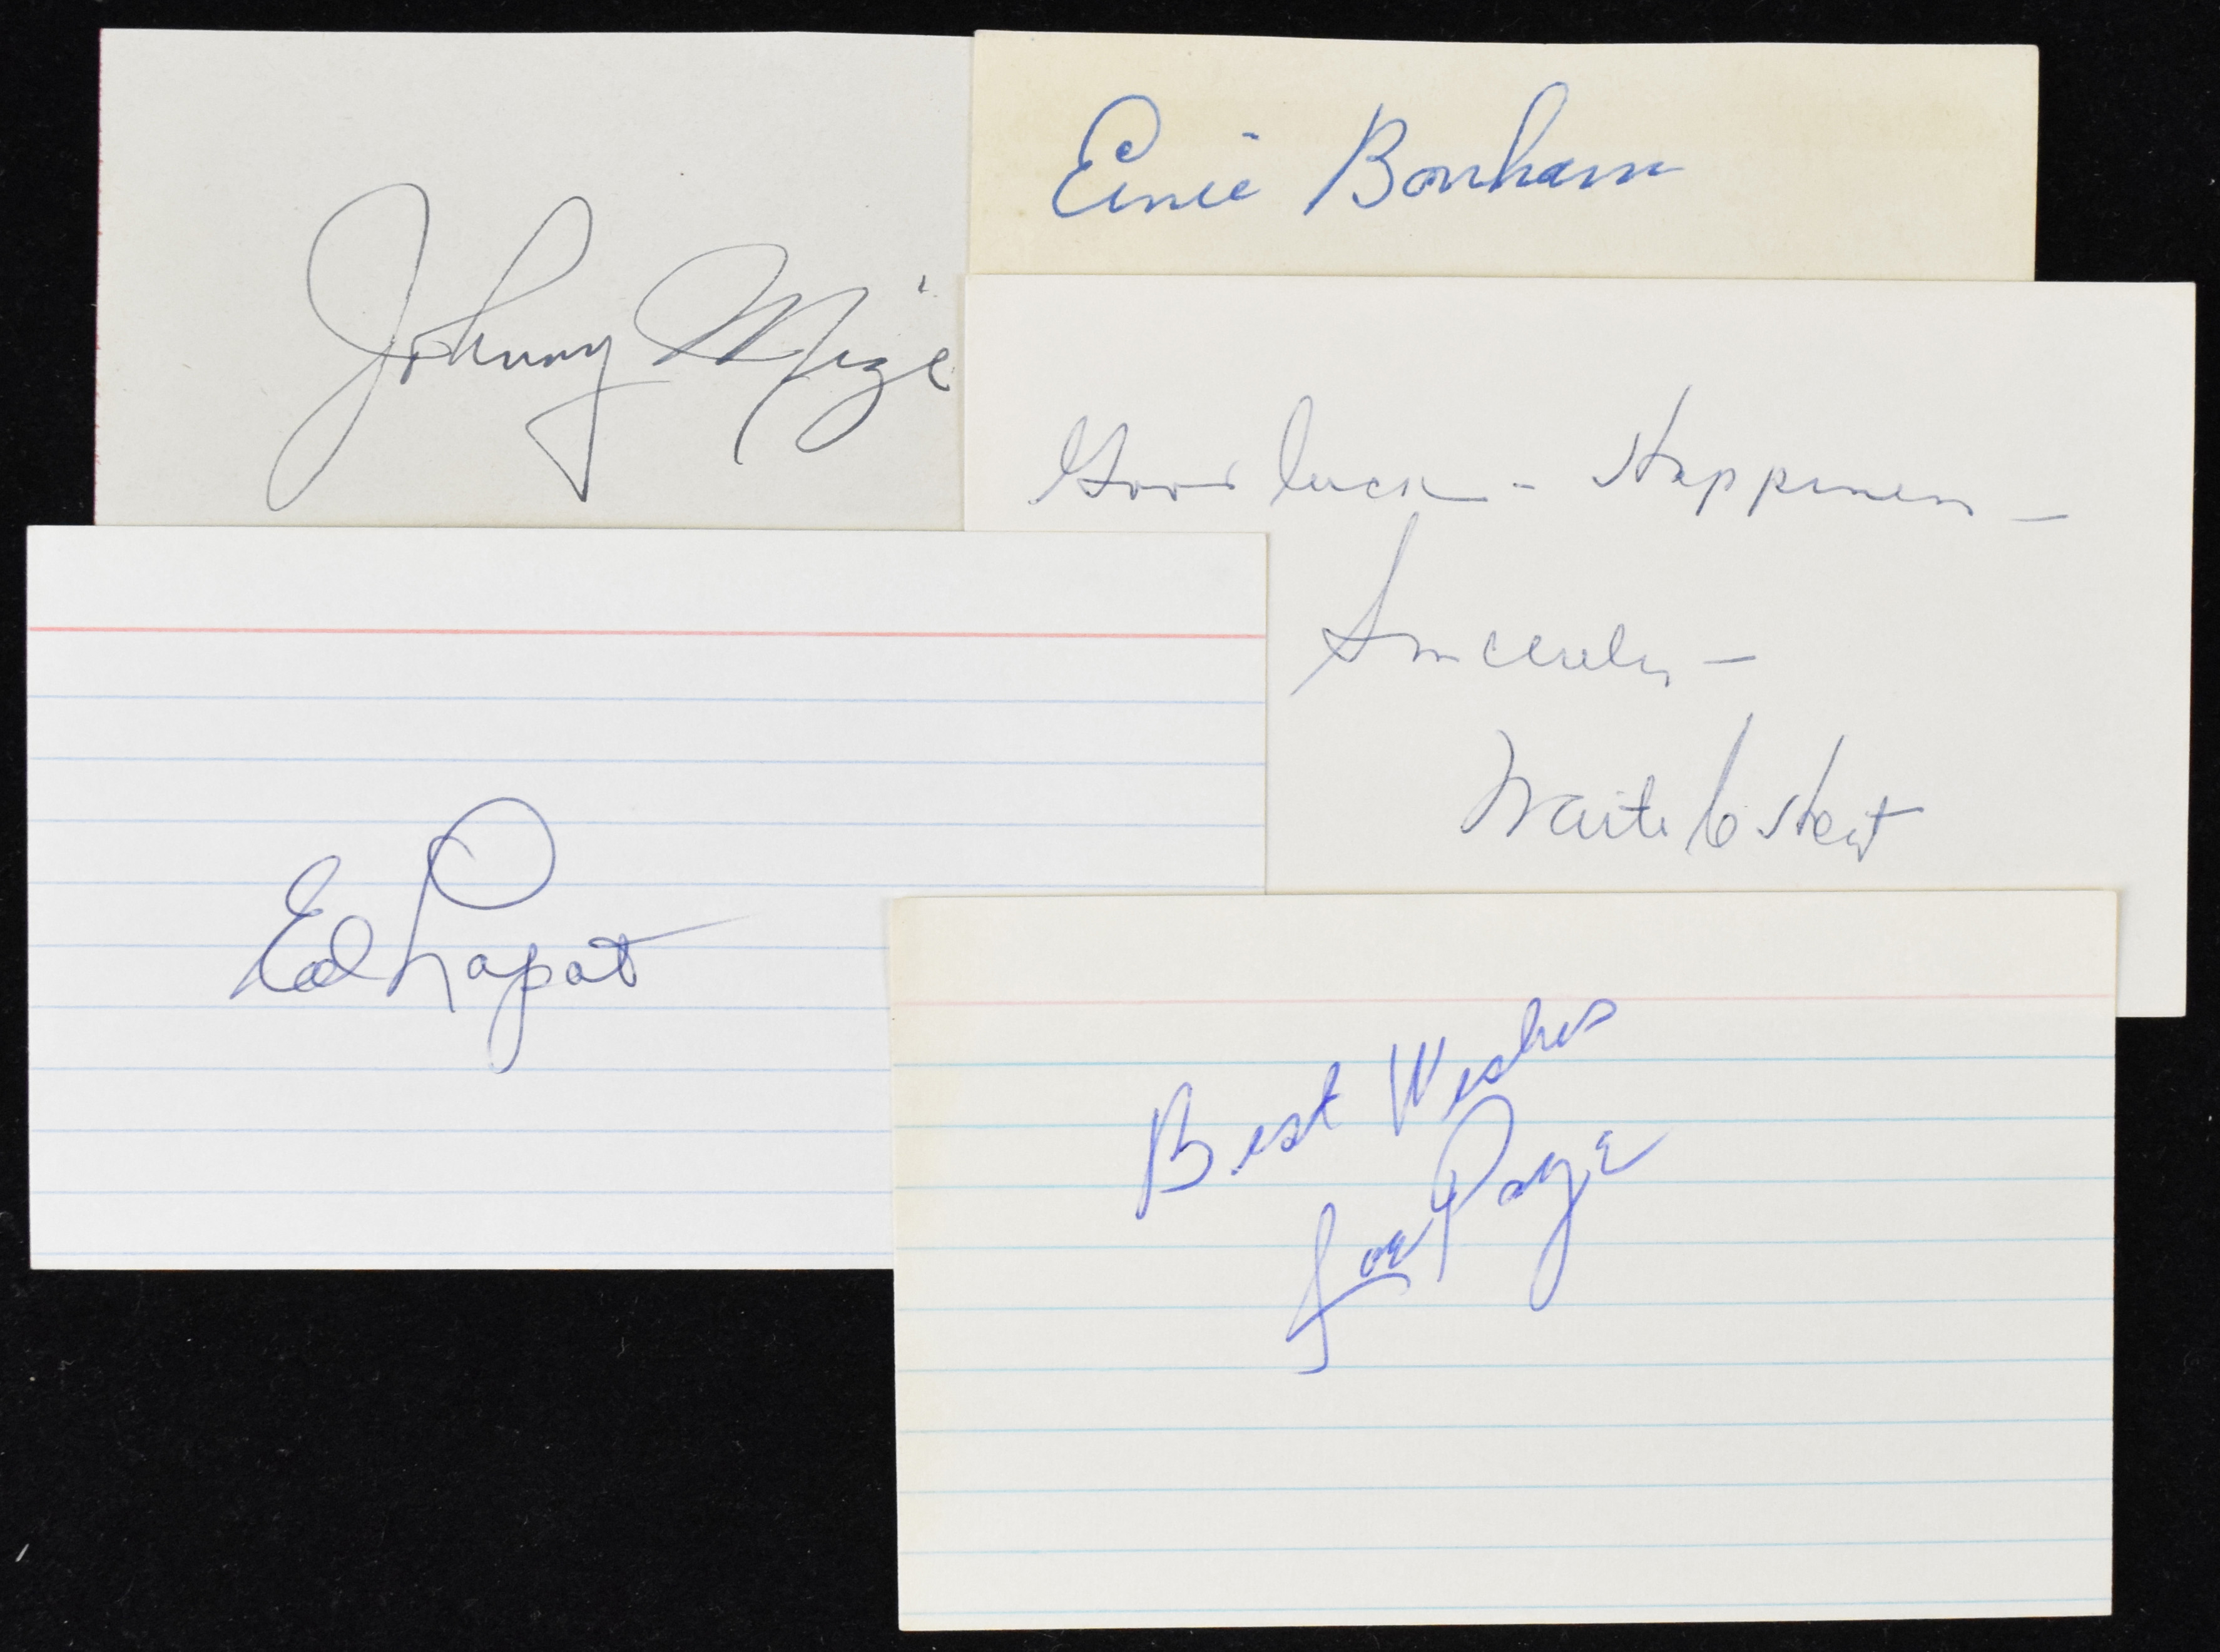 Johnny Mize
Ernie Bonham
Good luck - Happiness -
Sincerely -
Waite C Hoyt
Ed Lopat
Best Wishes
Joe Page